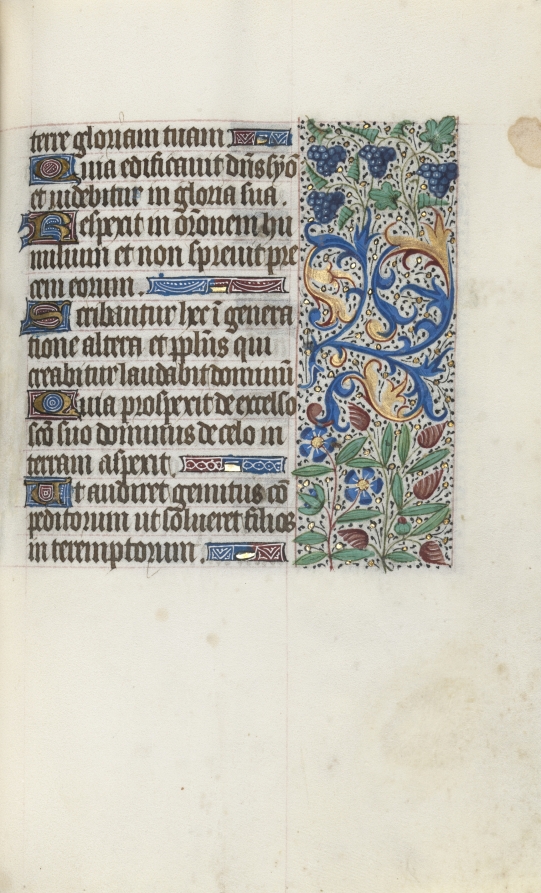 terre gloriam tuam
Quia edificauit dn̄s syō
et uidebitur in gloria sua.
Respexit in or̄onem hu
milium et non spreuit pre
cem eorum.
Scribantur hec ī genera
tione altera et ppl̄us qui
creabitur laudabit dominū
Quia prospexit de excelso
sc̄o suo dominus de celo in
terram aspexit.
Ut audiret gemitus cō
peditorum ut sōlueret filios
in teremptorum.